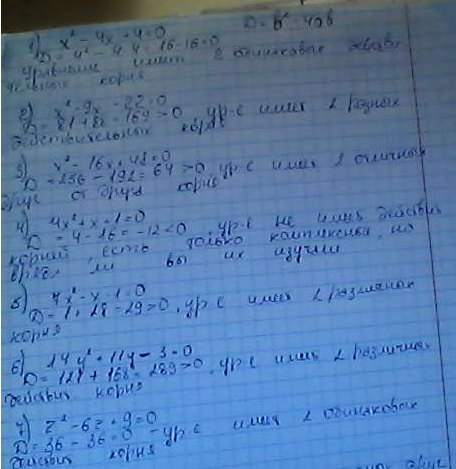 1) x² - 4x + 4 = 0 D = b² - 4ab
D = 4² - 4·4 = 16 - 16 = 0
уравнение имеет 2 одинаковых действи
тельных корня
2) x² - 9x - 22 = 0
D = 81 + 88 = 169 > 0, ур-е имеет 2 разных
действительных корня
3) x² - 16x + 48 = 0
D = 256 - 192 = 64 > 0, ур-е имеет 2 отличных
друг от друга корня
4) 4x² + x + 1 = 0
D = 4 - 16 = -12 < 0, ур-е не имеет действит
корней, есть только комплексные, но
вряд ли вы их изучали
5) 7x² - x - 1 = 0
D = 1 + 28 = 29 > 0, ур-е имеет 2 различных
корня
6) 14y² + 11y - 3 = 0
D = 121 + 168 = 289 > 0, ур-е имеет 2 различных
действит корня
7) z² - 6z + 9 = 0
D = 36 - 36 = 0 - ур-е имеет 2 одинаковых
действит корня
друг